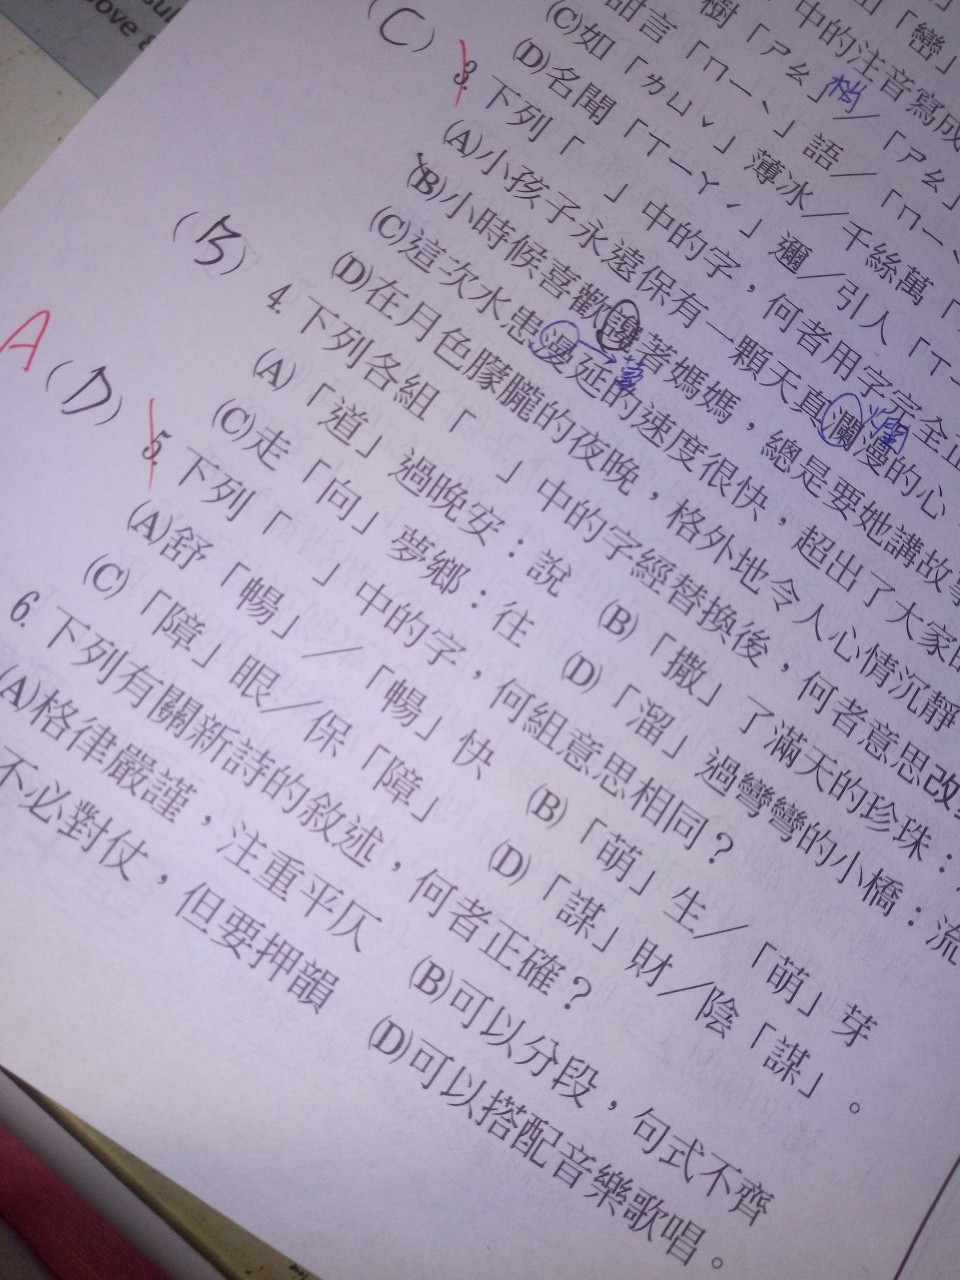 樹「ㄕㄠ」梢/「ㄕㄠ」
中的注音寫成
甜言「ㄇㄧˋ」語/「ㄇㄧˋ
(C)如「ㄌㄩˇ」薄冰/千絲萬「
(D)名聞「ㄒㄧㄚˊ」邇/引人「ㄒㄧ
(C) 3. 下列「 」中的字,何者用字完全正
(A)小孩子永遠保有一顆天真瀾漫的心
(B)小時候喜歡著媽媽,總是要她講故事
(C)這次水患漫延的速度很快,超出了大家的
(D)在月色朦朧的夜晚,格外地令人心情沉靜
(B) 4. 下列各組「 」中的字經替換後,何者意思改變
(A)「道」過晚安:說 (B)「撒」了滿天的珍珠:
(C)走「向」夢鄉:往 (D)「溜」過彎彎的小橋:流
A (D) 5. 下列「 」中的字,何組意思相同?
(A)舒「暢」/「暢」快 (B)「萌」生/「萌」芽
(C)「障」眼/保「障」 (D)「謀」財/陰「謀」。
6. 下列有關新詩的敘述,何者正確?
(A)格律嚴謹,注重平仄 (B)可以分段,句式不齊
不必對仗,但要押韻 (D)可以搭配音樂歌唱。